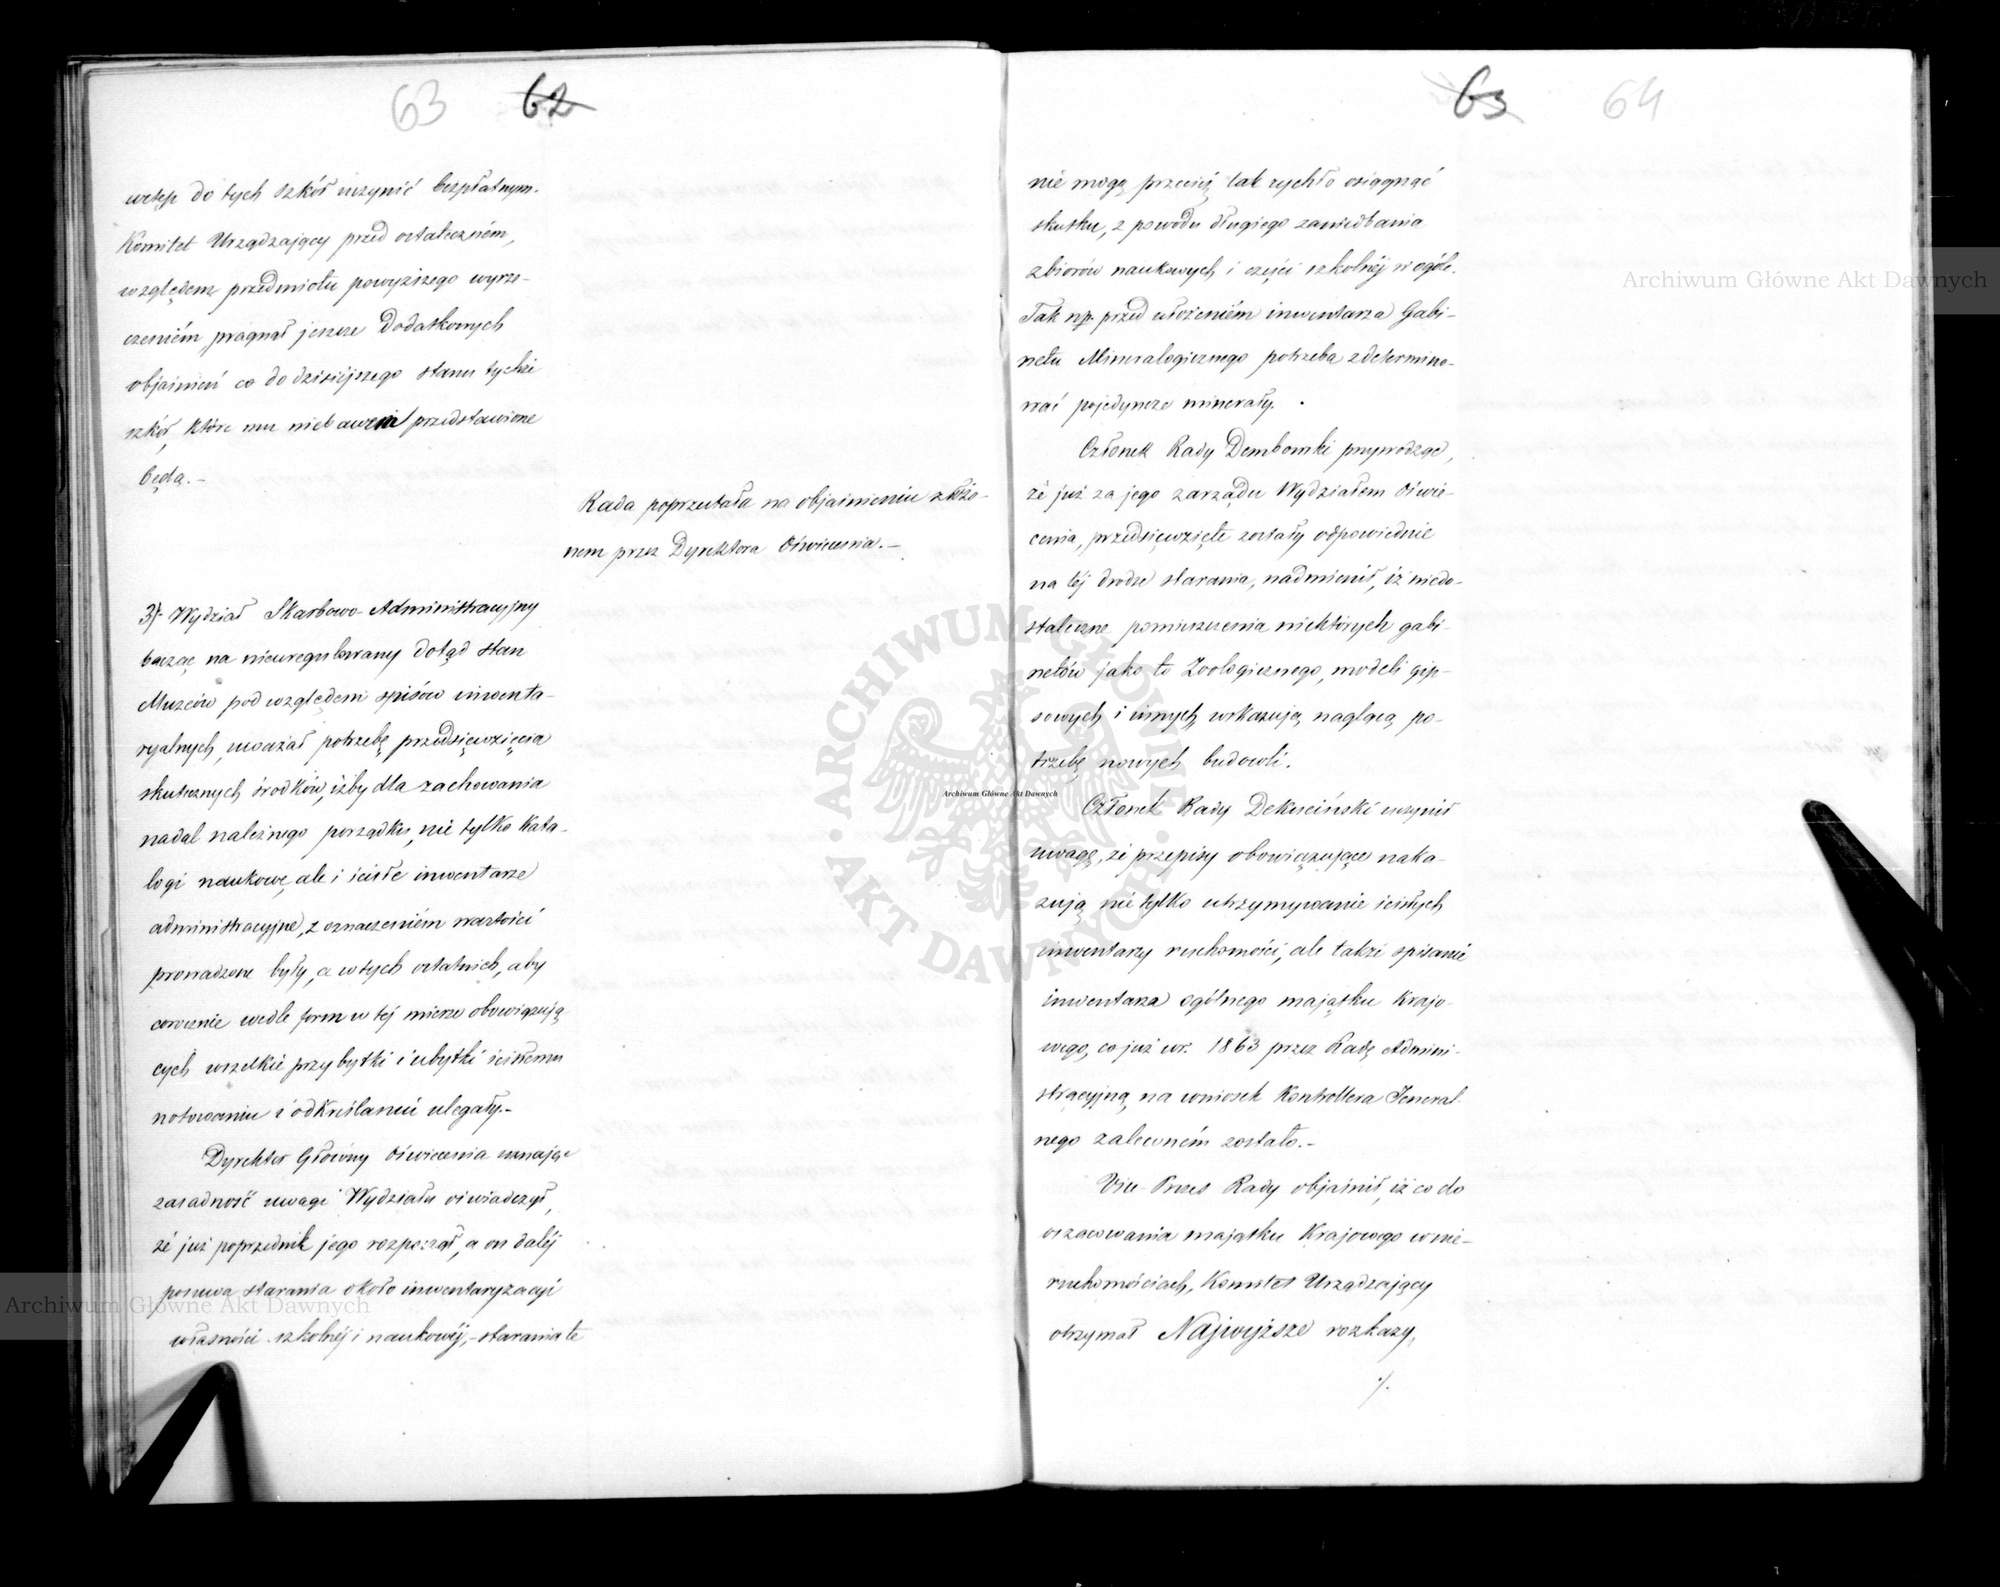 63 62
wstęp do tych szkół uczynić bezpłatnym.
Komitet Urządzający przed ostateczném,
względem przedmiotu powyższego wyrze-
czeniém pragnął jeszcze dodatkowych
objaśnień co do dzisiéjszego stanu tychże
szkół, które mu niebawem przedstawione
będą.-
Rada poprzestała na objaśnieniu złożo-
nem przez Dyrektora Oświecenia.-
3) Wydział Skarbowo-Administracyjny
bacząc na nieuregulowany dotąd stan
Muzeów pod względem spisów inwenta-
ryalnych, uważał potrzebę przedsięwzięcia
skutecznych środków, iżby dla zachowania
nadal należnego porządku, nie tylko kata-
logi naukowe, ale i ścisłe inwentarze
administracyjne, z oznaczeniém wartości
prowadzone były, a w tych ostatnich, aby
corocznie wedle form w téj mierze obowiązują
cych wszelkie przybytki i ubytki ścisłemu
notowaniu i odkreślaniu ulegały.-
Dyrektor Główny Oświecenia uznając
zasadność uwagi Wydziału oświadczył,
że już poprzednik jego rozpoczął, a on daléj
posuwa starania około inwentaryzacyi
własności szkolnéj i naukowéj,- starania te
63 64
nie mogą przecież tak rychło osiągnąć
skutku, z powodu długiego zaniedbania
zbiorów naukowych i części szkolnéj w ogóle.
Tak np. przed ułożeniém inwentarza Gabi-
netu Mineralogicznego potrzeba zdetermino-
wać pojedyncze minerały.
Członek Rady Dembowski przywodząc,
że już za jego zarządu Wydziałem Oświe-
cenia, przedsięwzięte zostały odpowiednie
na téj drodze starania, nadmienił, iż niedo-
stateczne pomieszczenia niektórych gabi-
netów jako to Zoologicznego, modeli gip-
sowych i innych, wskazują naglącą po-
trzebę nowych budowli.
Członek Rady Dekuciński uczynił
uwagę, że przepisy obowiązujące naka-
zują nie tylko utrzymywanie ścisłych
inwentarzy ruchomości, ale także spisanie
inwentarza ogólnego majątku Krajo-
wego, co już w r. 1863 przez Radę Admini-
stracyjną, na wniosek Kontrollera Jeneral-
nego zaleconém zostało.-
Vice-Prezes Rady objaśnił, iż co do
oszacowania majątku Krajowego w nie-
ruchomościach, Komitet Urządzający
otrzymał Najwyższe rozkazy,
./.
Archiwum Główne Akt Dawnych
Archiwum Główne Akt Dawnych
Archiwum Główne Akt Dawnych
ARCHIWUM GŁÓWNE AKT DAWNYCH